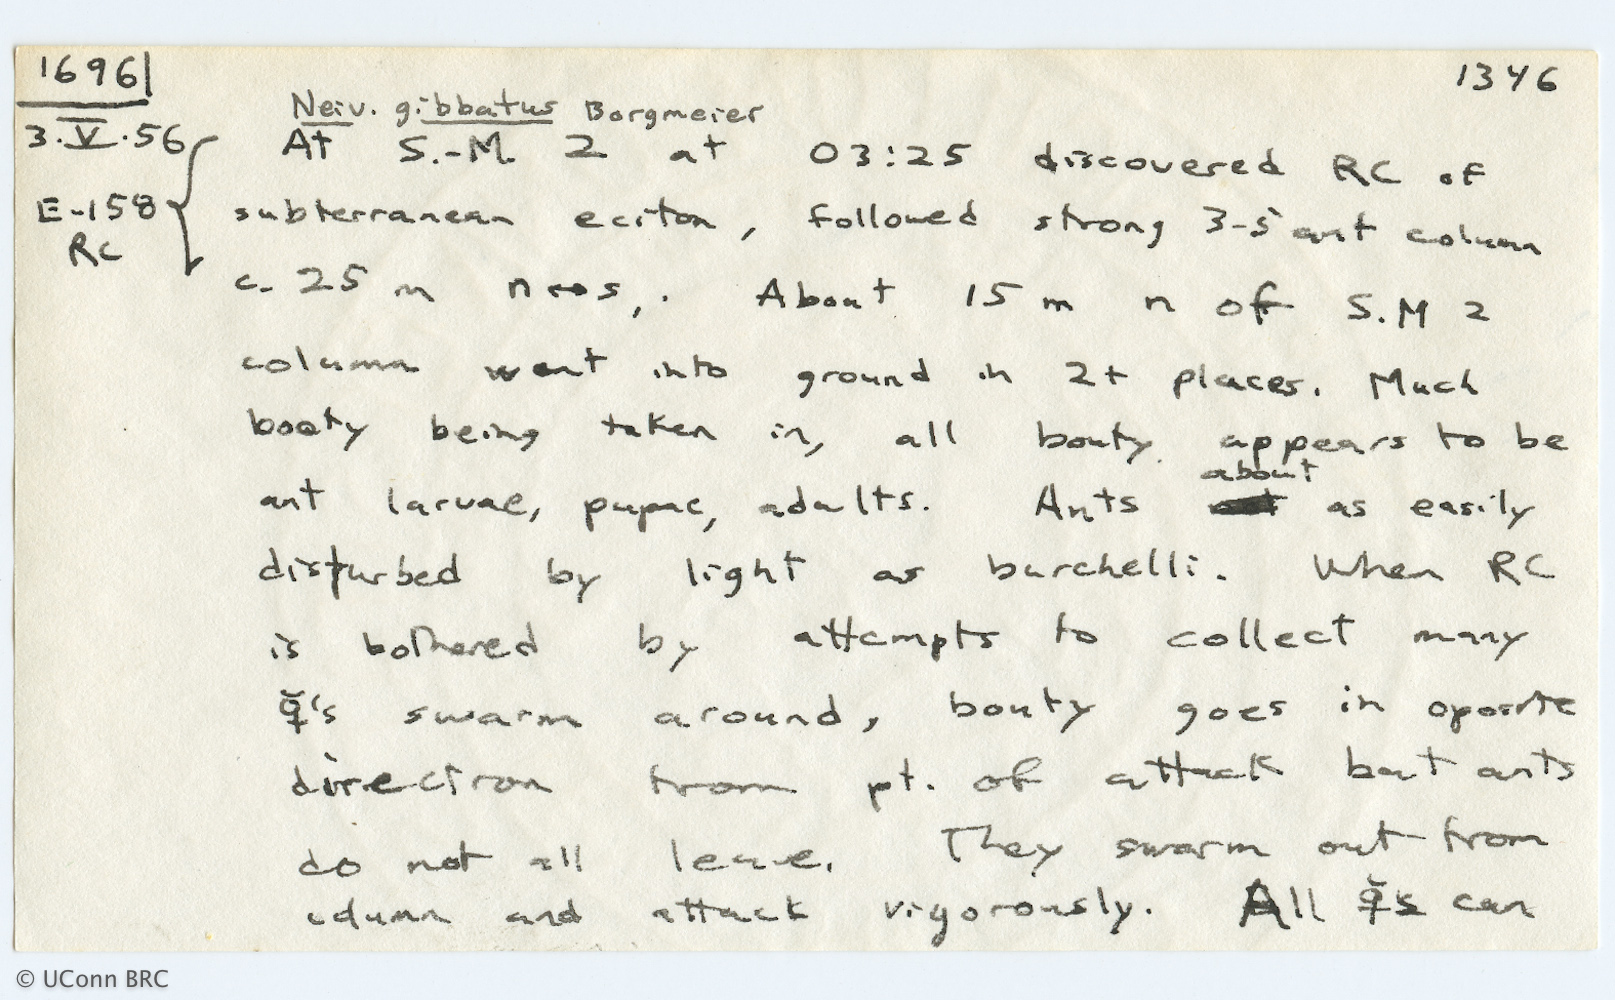 1696
1346
Neiv. gibbatus Borgmeier
3.V.56
At S.-M. 2 at 03:25 discovered RC of
E-158
RC
subterranean eciton, followed strong 3-5 ant column
c. 25 m n↔s,. About 15 m n of S.M 2
column went into ground in 2+ places. Much
booty being taken in, all bouty appears to be
ant larvae, pupae, adults. Ants about as easily
disturbed by light as burchelli. When RC
is bothered by attempts to collect many
☿'s swarm around, bouty goes in oposite
direction from pt. of attack but ants
do not all leave. They swarm out from
column and attack vigorously. All ☿'s can
© UConn BRC